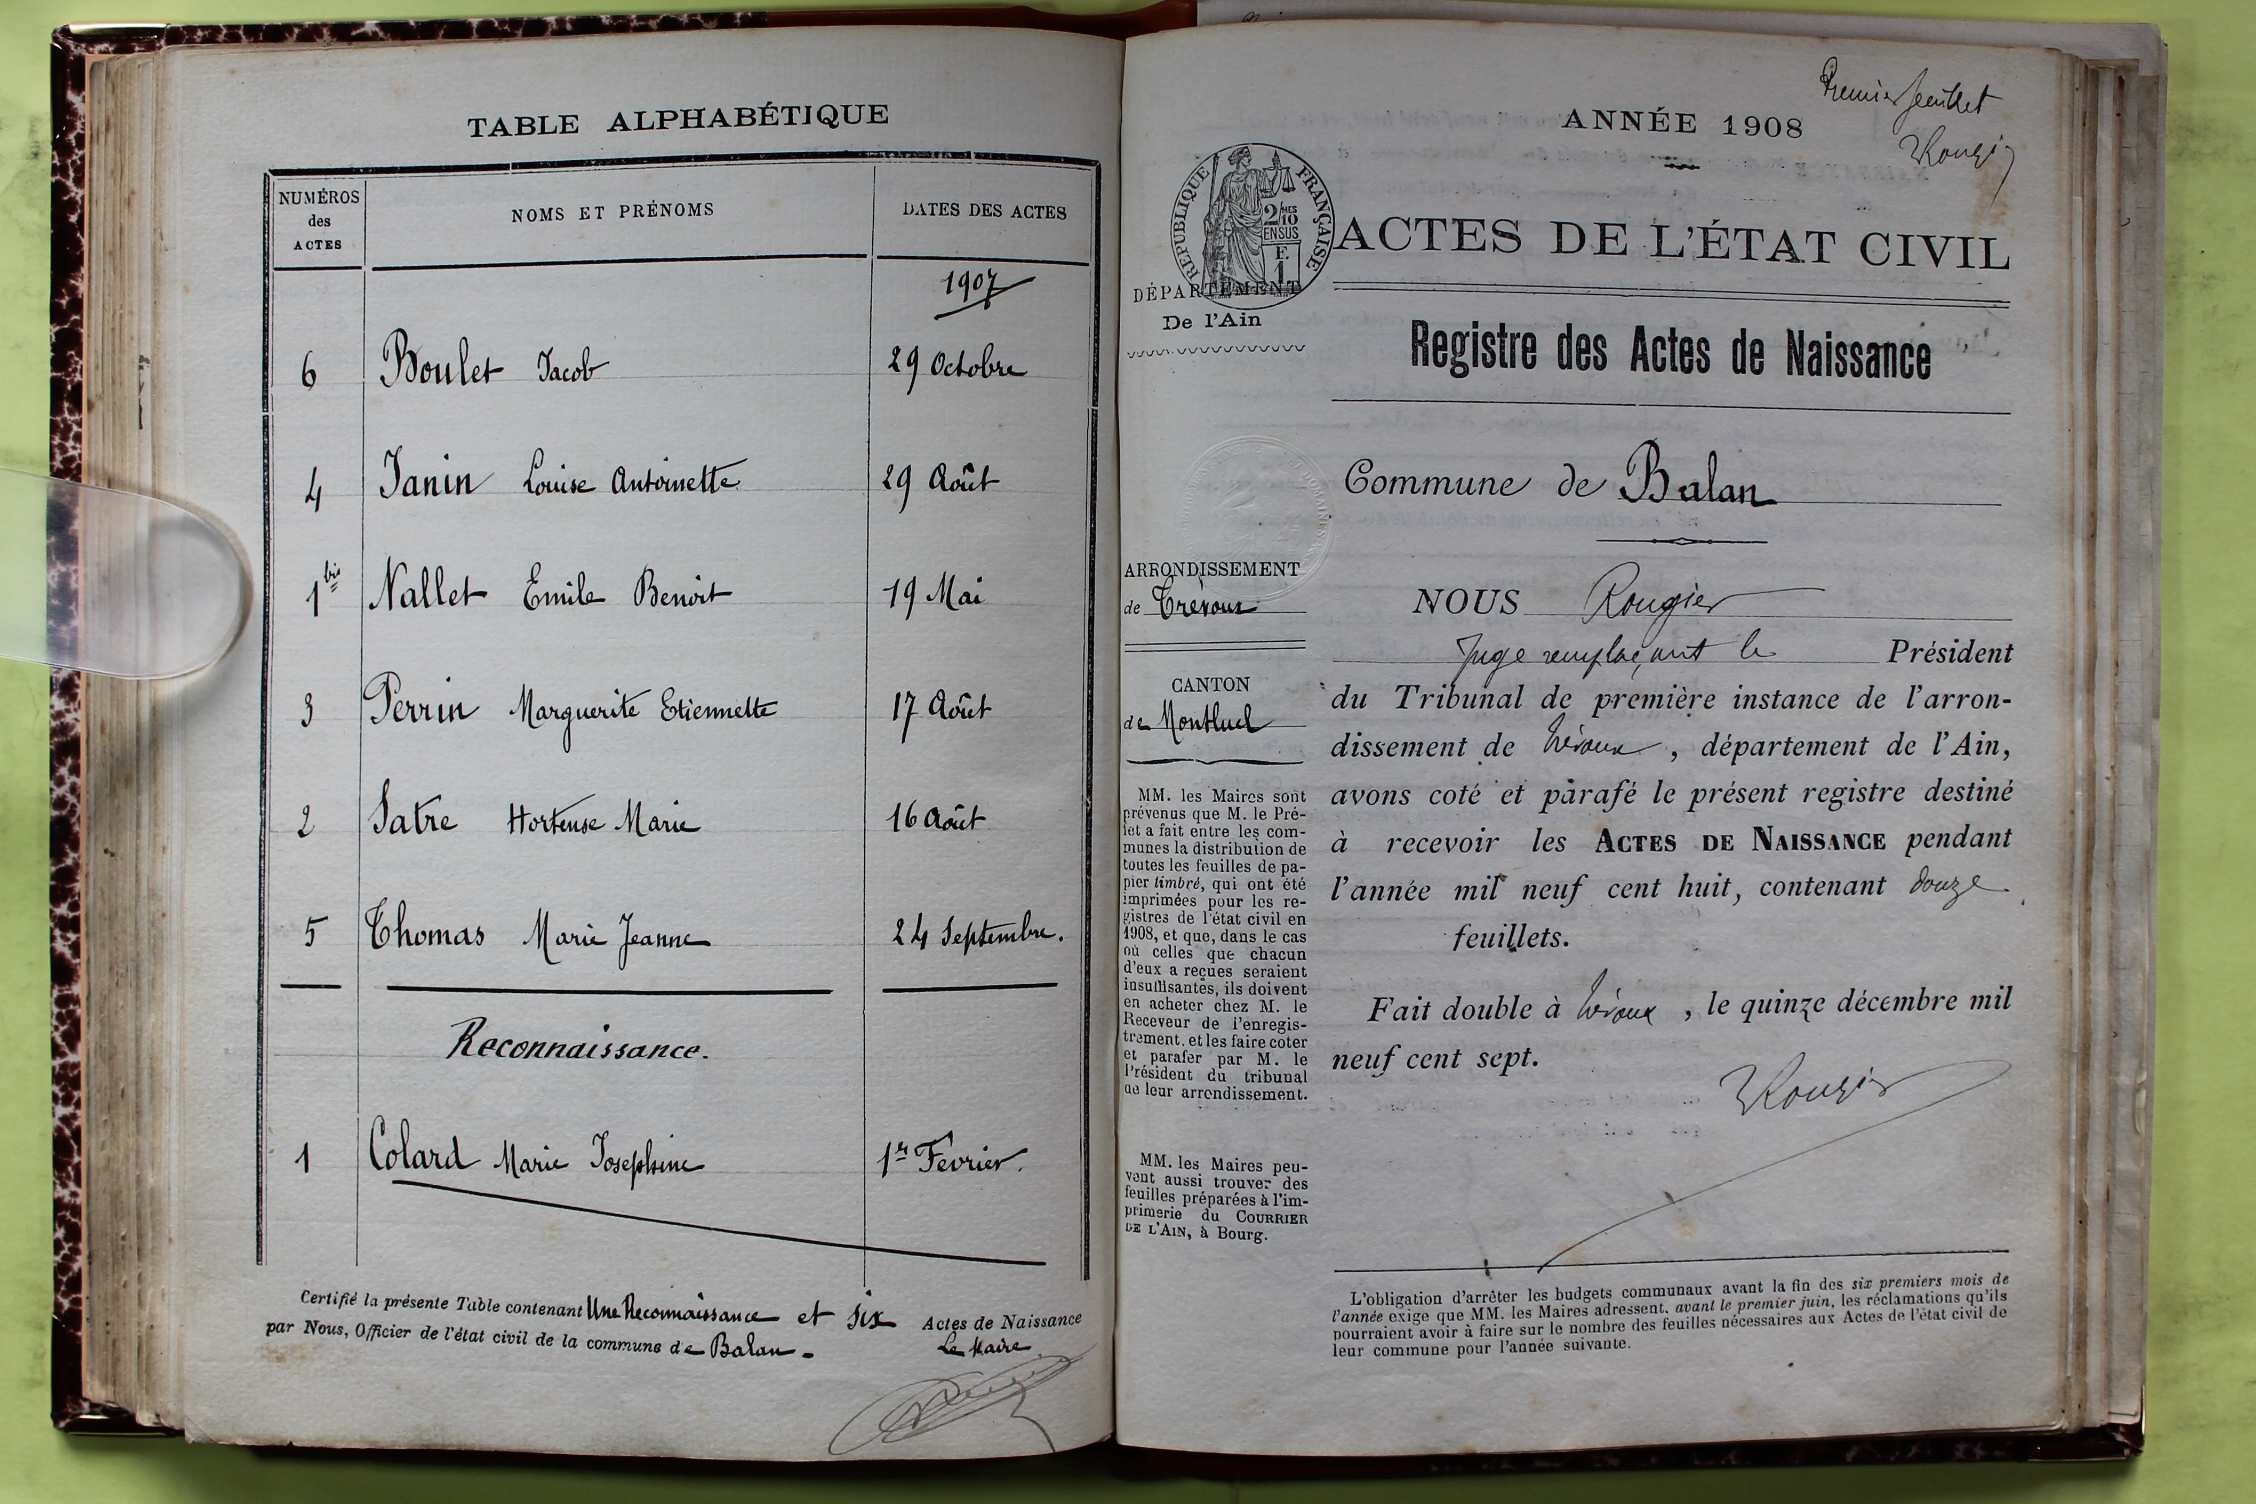 TABLE ALPHABÉTIQUE
NUMÉROS
des
ACTES
NOMS ET PRÉNOMS
DATES DES ACTES
1907
6 Boulet Jacob 29 Octobre
4 Janin Louise Antoinette 29 Août
1 bis Nallet Emile Benoit 19 Mai
3 Perrin Marguerite Etiennette 17 Août
2 Satre Hortense Marie 16 Août
5 Thomas Marie Jeanne 24 Septembre.
Reconnaissance.
1 Colard Marie Josephine 1er Fevrier.
Certifié la présente Table contenant Une Reconnaissance et six Actes de Naissance
par Nous, Officier de l'état civil de la commune de Balan.
Le Maire
Premier feuillet
Rougier
ANNÉE 1908
RÉPUBLIQUE FRANÇAISE
2/10 MES
EN SUS
E
1
ACTES DE L'ÉTAT CIVIL
DÉPARTEMENT
De l'Ain
Registre des Actes de Naissance
Commune de Balan
ARRONDISSEMENT
de Trévoux
CANTON
de Montluel
MM. les Maires sont
prévenus que M. le Pré-
fet a fait entre les com-
munes la distribution de
toutes les feuilles de pa-
pier timbré, qui ont été
imprimées pour les re-
gistres de l'état civil en
1908, et que, dans le cas
où celles que chacun
d'eux a reçues seraient
insuffisantes, ils doivent
en acheter chez M. le
Receveur de l'enregis-
trement, et les faire coter
et parafer par M. le
Président du tribunal
de leur arrondissement.
MM. les Maires peu-
vent aussi trouver des
feuilles préparées à l'im-
primerie du COURRIER
DE L'AIN, à Bourg.
NOUS Rougier
Juge remplaçant le Président
du Tribunal de première instance de l'arron-
dissement de Trévoux, département de l'Ain,
avons coté et parafé le présent registre destiné
à recevoir les ACTES DE NAISSANCE pendant
l'année mil neuf cent huit, contenant douze
feuillets.
Fait double à Trévoux, le quinze décembre mil
neuf cent sept.
Rougier
L'obligation d'arrêter les budgets communaux avant la fin des six premiers mois de
l'année exige que MM. les Maires adressent, avant le premier juin, les réclamations qu'ils
pourraient avoir à faire sur le nombre des feuilles nécessaires aux Actes de l'état civil de
leur commune pour l'année suivante.